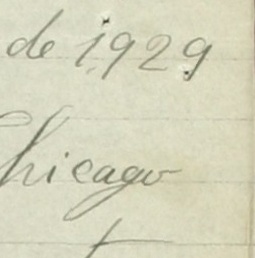 de 1929
Chicago